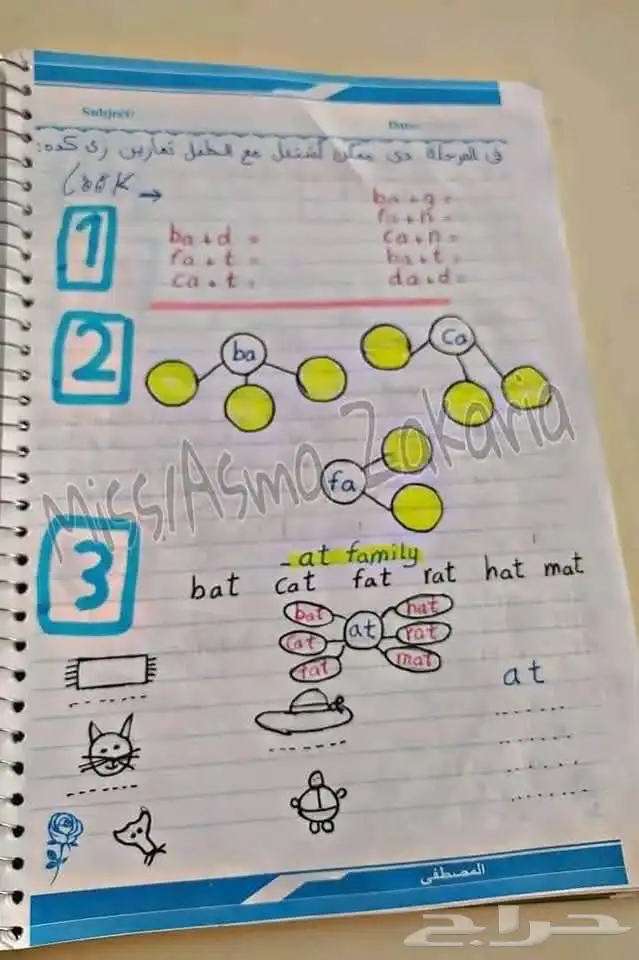 Subject:
Date:
فى المرحلة دى ممكن نشتغل مع الطفل تمارين زى كده:
Look →
1
ba+d =
fa+t =
ca+t =
ba+g =
fa+n =
ca+n =
ba+t =
da+d =
2
ba
ca
fa
Miss/Asma Zakaria
3
- at family
bat cat fat rat hat mat
bat
cat
fat
at
hat
rat
mat
at
المصطفى
حراج